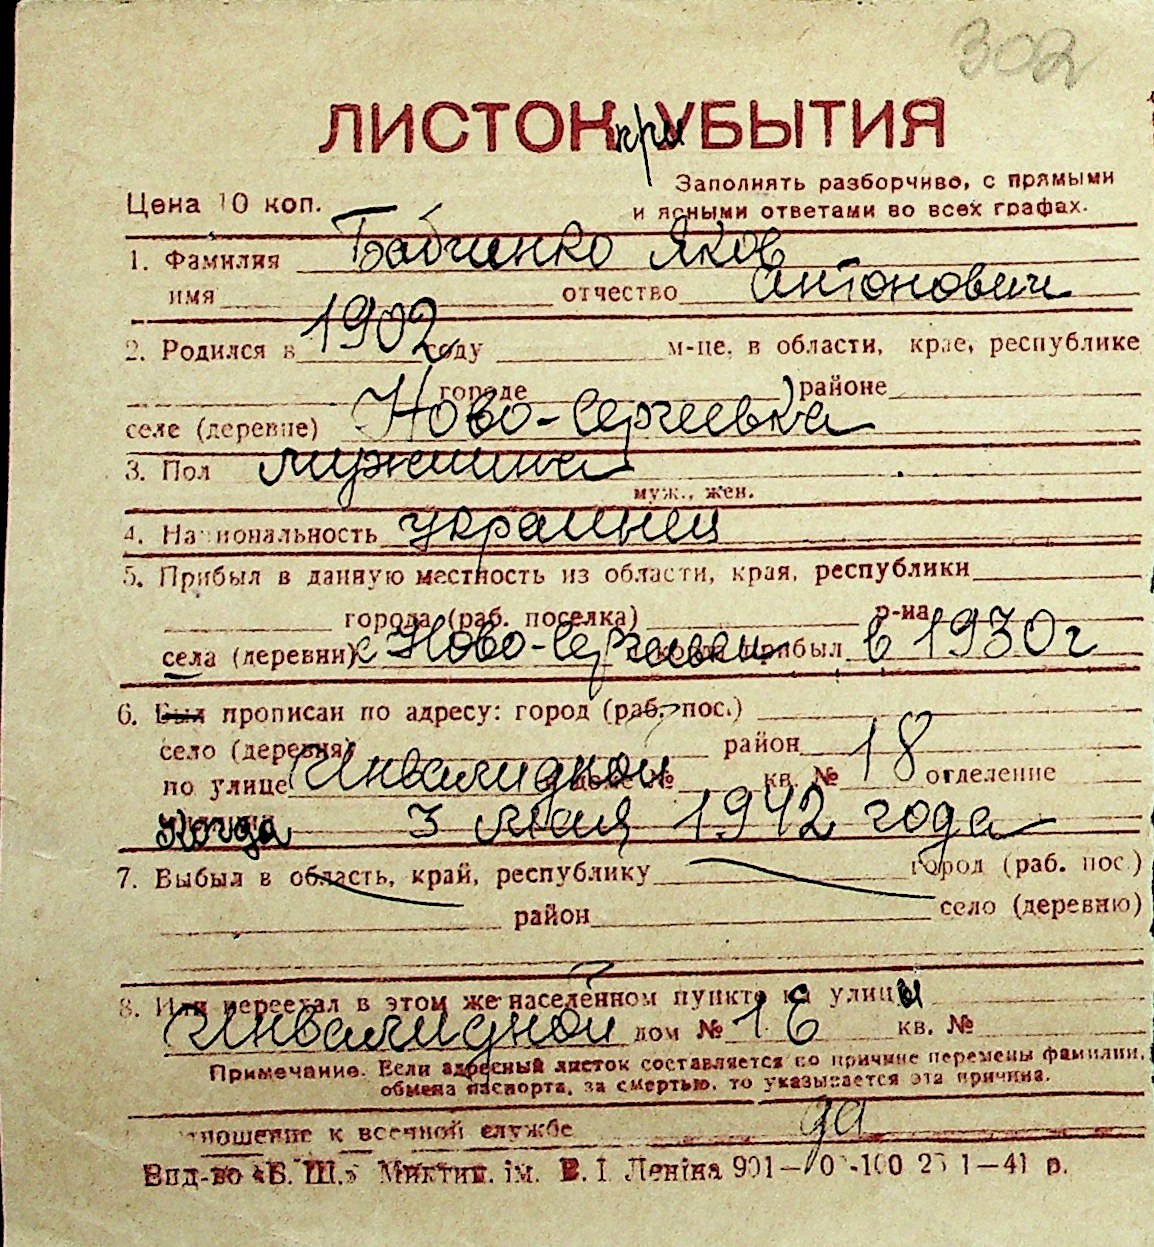 302
ЛИСТОК при УБЫТИЯ
Заполнять разборчиво, с прямыми
Цена 10 коп.
и ясными ответами во всех графах.
1. Фамилия Бабченко Яков
имя отчество Антонович
2. Родился в 1902 году м-це, в области, крае, республике
городе районе
селе (деревне) Ново-Сергеевка
3. Пол мужчина
муж., жен.
4. Национальность украинец
5. Прибыл в данную местность из области, края, республики
города (раб. поселка) р-на
села (деревни) с Ново-Сергеевки прибыл в 1930 г
6. Был прописан по адресу: город (раб. пос.)
село (деревня) район
по улице Инвалидной доме № кв. № 18 отделение
Когда 3 мая 1942 года
7. Выбыл в область, край, республику город (раб. пос.)
район село (деревню)
8. Или переехал в этом же населённом пункте на улицы
Инвалидной дом № 18 кв. №
Примечание. Если адресный листок составляется по причине перемены фамилии,
обмена паспорта, за смертью, то указывается эта причина.
отношение к военной службе да
Вид-во «Б. Ш.» ім. В. І. Леніна 901— 100 1—41 р.